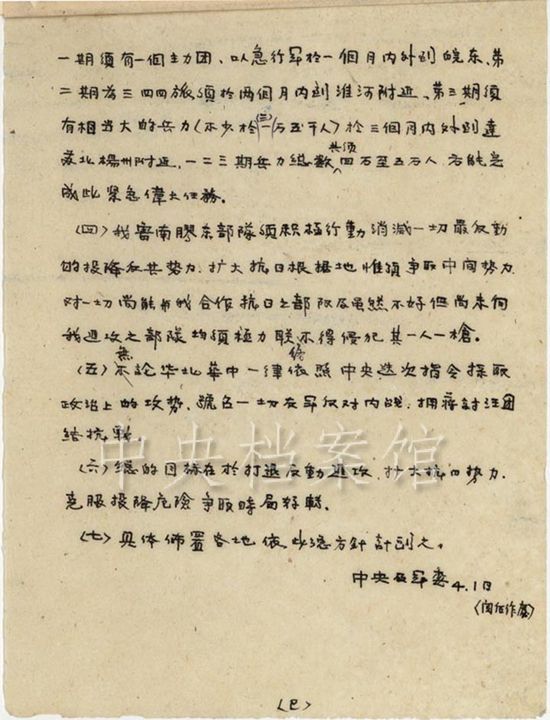 一期須有一個主力团、以急行军於一個月内外到皖东、第
二期為三四四旅須於两個月内到淮河附近、第三期須
有相当大的兵力(不少於一万五千人)於三個月内外到達
苏北揚州附近、一二三期兵力總数共須四万至五万人 方能完
成此紧急偉大任務。
(四)我魯南膠东部隊須积極行動消滅一切最反動
的投降反共势力、扩大抗日根据地 惟須争取中间势力
对一切尚能与我合作抗日之部队及虽然不好但尚未向
我進攻之部隊均須極力联 不得侵犯其一人一槍。
(五)無論华北華中一律依照中央迭次指令採取
政治上的攻势、號召一切友军反对内战、拥蒋討汪团
结抗戰
(六)總的目标在於打退反動進攻、扩大抗日势力、
克服投降危險 争取時局好轉。
(七)具体佈置各地依此总方針計划之。
中央及军委 4.1日
中央档案馆